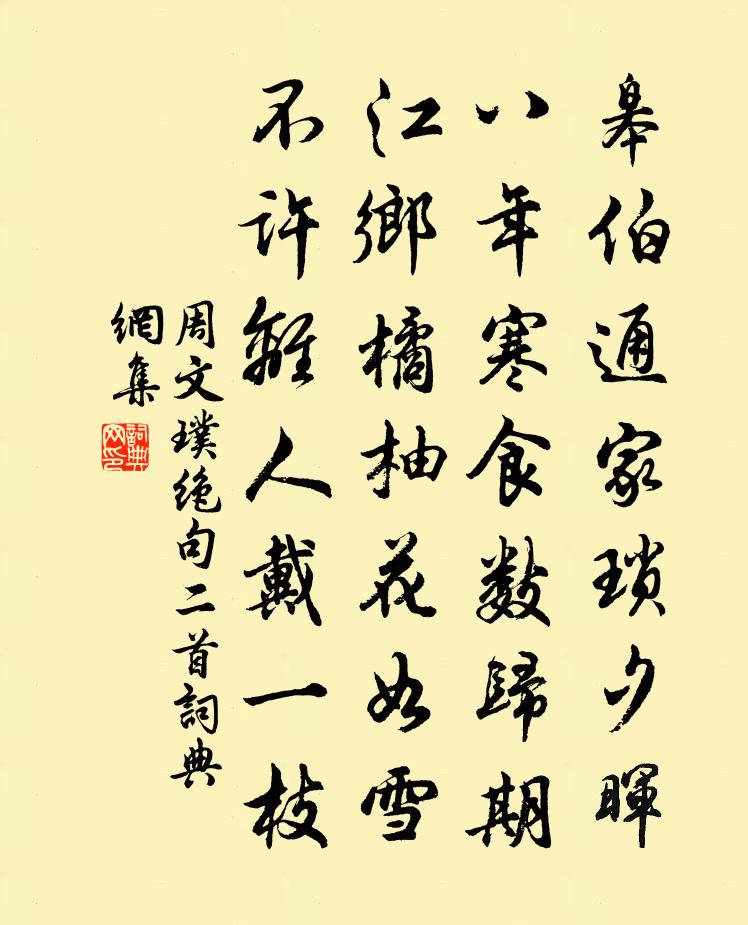 皋伯通家瑣夕暉
八年寒食數歸期
江鄉橘柚花如雪
不許離人戴一枝
周文璞絶句二首詞典
網集
詞典網印